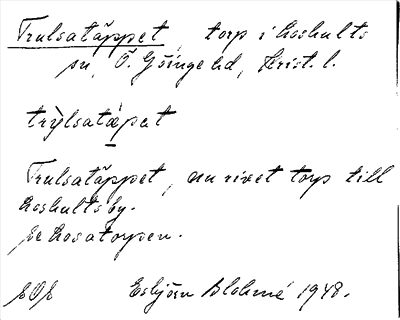 Trulsatäppet, torp i Loshults
sn, Ö. Göinge hd, Krist. l.
trỳlsatæ̀pat
Trulsatäppet, nu rivet torp till
Loshults by.
se Losatorpen.
Esbjörn Blohmé 1948.